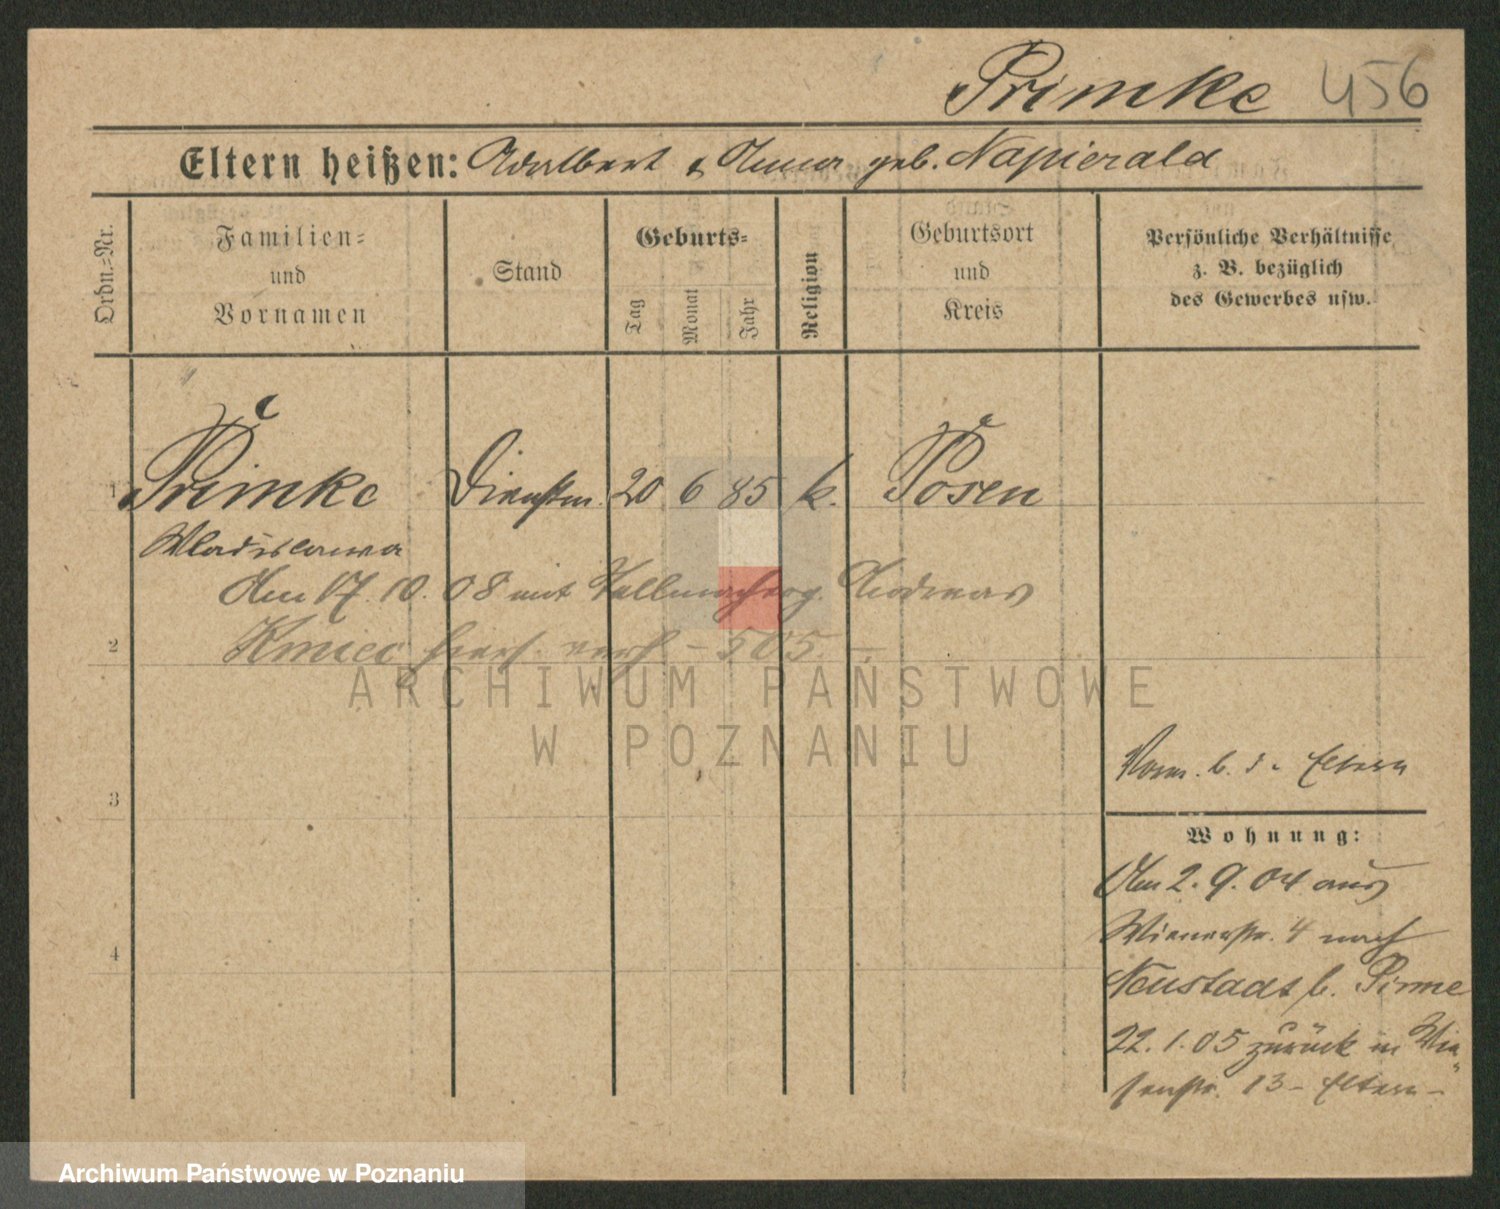 Primke 456
Eltern heißen: Adalbert & Anna geb. Napierala
Ordn.=Nr.
Familien=
und
Vornamen
Stand
Geburts=
Tag
Monat
Jahr
Religion
Geburtsort
und
Kreis
Persönliche Verhältnisse
z. B. bezüglich
des Gewerbes usw.
1 Primke Dienstm. 20 6 85 k. Posen
Wladislawa
Am 17. 10. 08 mit Andreas
2 Kmiec hier verh. – 505 –
ARCHIWUM PAŃSTWOWE
W POZNANIU
b. d. Eltern
3
Wohnung:
Am 2. 9. 04 aus
Wienerstr. 4 nach
4
Neustadt b. Pinne
22. 1. 05 zurück in Wie„
senstr. 13 – Eltern –
Archiwum Państwowe w Poznaniu